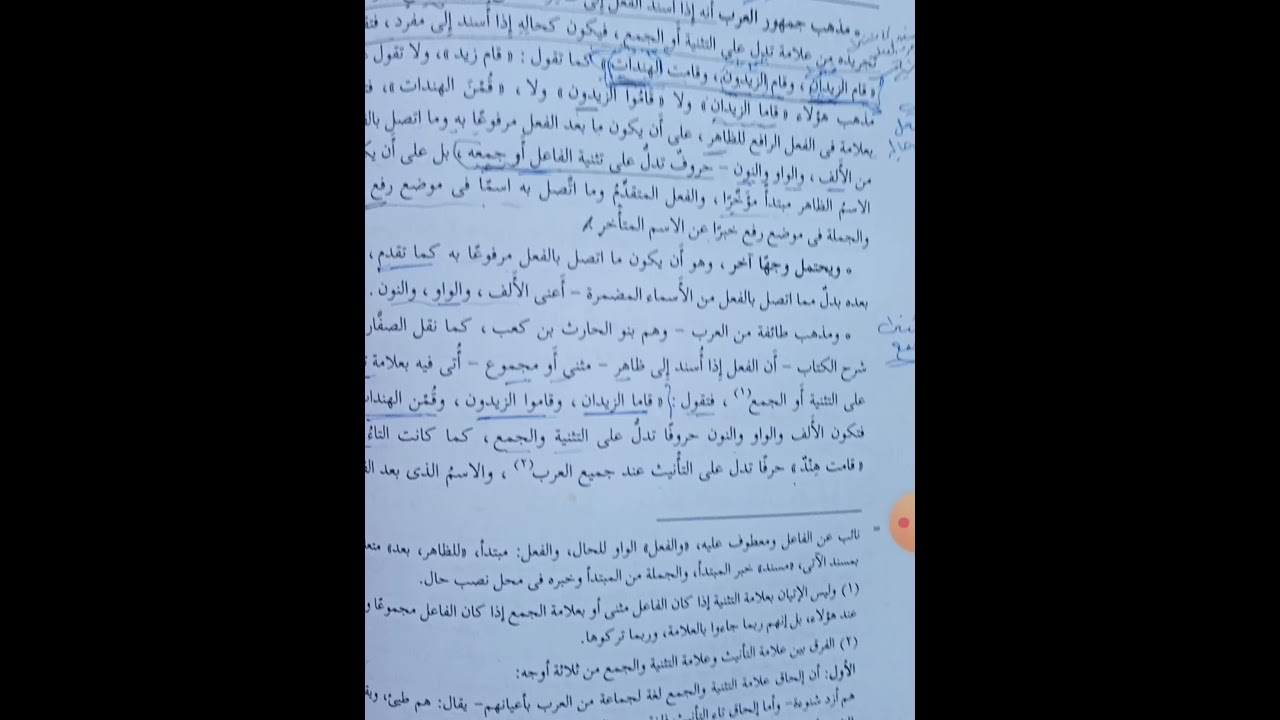 • مذهب جمهور العرب أنه إذا أسند الفعل إلى
تجريده من علامة تدل على التثنية أو الجمع، فيكون كحاله إذا أسند إلى مفرد،
« قام الزيدان، وقام الزيدون، وقامت الهندات » كما تقول: « قام زيد»، ولا تقول
مذهب هؤلاء « قاما الزيدان» ولا « قاموا الزيدون » ولا، « قُمْنَ الهندات »،
بعلامة فى الفعل الرافع للظاهر، على أن يكون ما بعد الفعل مرفوعًا به وما اتصل
من الألف، والواو والنون – حروفٌ تدلُّ على تثنية الفاعل أو جمعه، بل على أن
الاسمُ الظاهر مبتدأً مؤخَّرًا، والفعل المتقدِّمُ وما اتَّصل به اسمًا فى موضع رفع
والجملة فى موضع رفع خبرًا عن الاسم المتأخر
• ويحتمل وجهًا آخر، وهو أن يكون ما اتصل بالفعل مرفوعًا به كما تقدم،
بعده بدلٌ مما اتصل بالفعل من الأسماء المضمرة – أعنى الألف، والواو، والنون.
• ومذهب طائفة من العرب – وهم بنو الحارث بن كعب، كما نقل الصفَّار
شرح الكتاب – أن الفعل إذا أُسند إلى ظاهر – مثنى أو مجموع – أُتى فيه بعلامة
على التثنية أو الجمع(١)، فتقول: « قاما الزيدان، وقاموا الزيدون، وقُمْن الهندات
فتكون الألف والواو والنون حروفًا تدلُّ على التثنية والجمع، كما كانت التاءُ
« قامت هِنْدٌ » حرفًا تدل على التأنيث عند جميع العرب(٢)، والاسمُ الذى بعد
= نائب عن الفاعل ومعطوف عليه، «والفعل» الواو للحال، والفعل: مبتدأ، «للظاهر، بعد»
بمسند الآتى، «مسند» خبر المبتدأ، والجملة من المبتدأ وخبره فى محل نصب حال.
(١) وليس الإتيان بعلامة التثنية إذا كان الفاعل مثنى أو بعلامة الجمع إذا كان الفاعل مجموعًا
عند هؤلاء، بل إنهم ربما جاءوا بالعلامة، وربما تركوها.
(٢) الفرق بين علامة التأنيث وعلامة التثنية والجمع من ثلاثة أوجه:
الأول: أن إلحاق علامة التثنية والجمع لغة لجماعة من العرب بأعيانهم– يقال: هم طيئ،
هم أزد شنوءة– وأما إلحاق تاء التأنيث